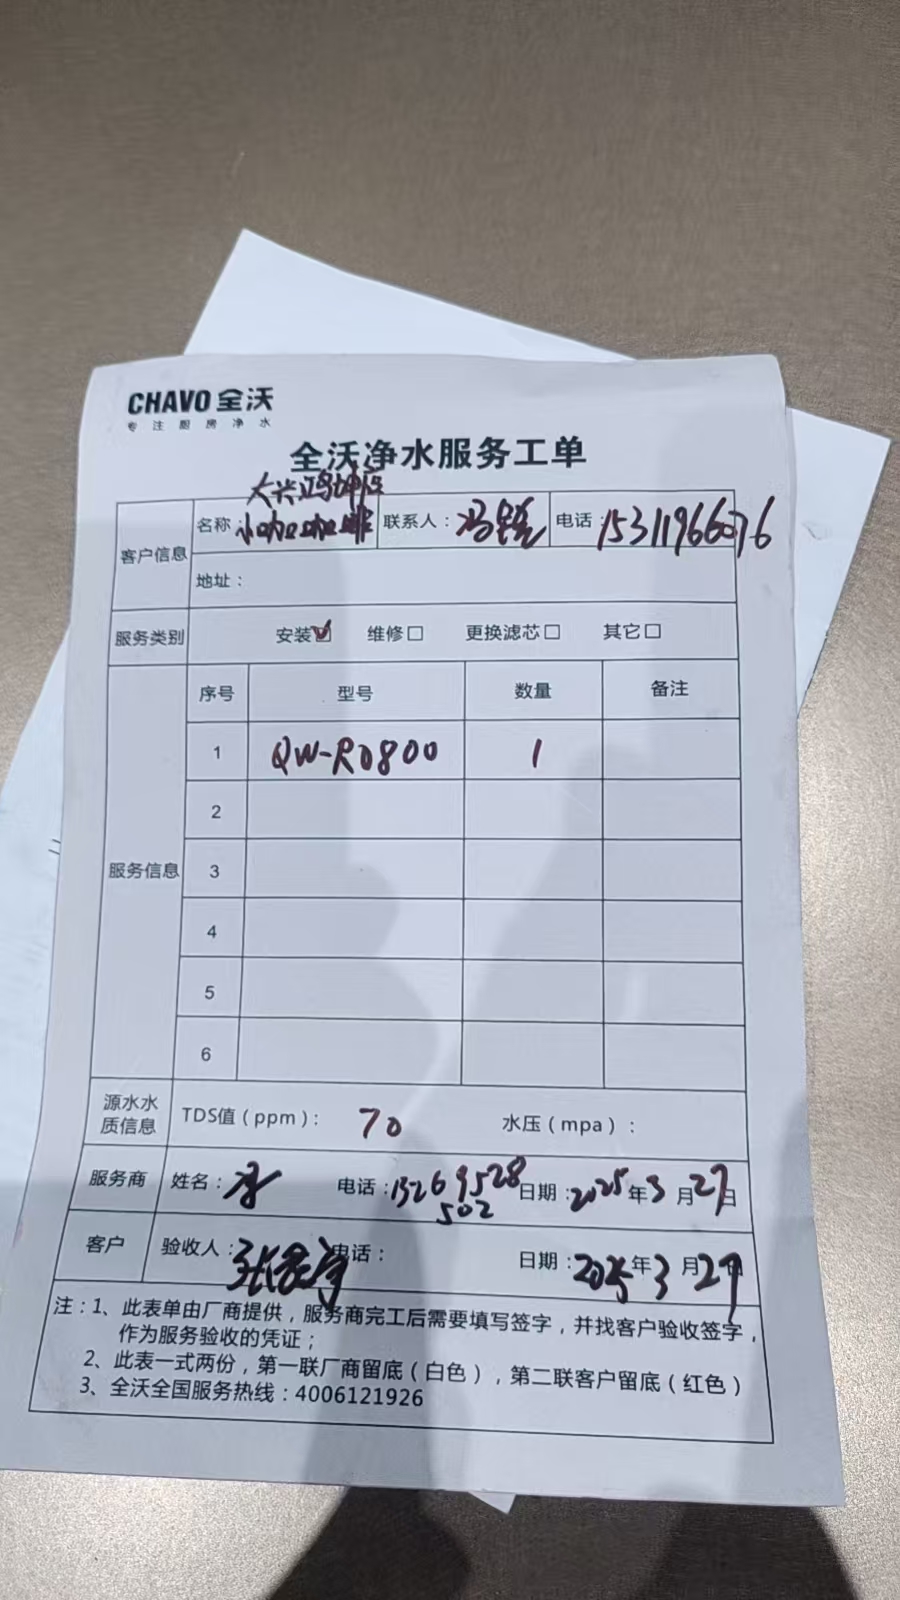 CHAVO 全沃
专注厨房净水
全沃净水服务工单
大兴鸿坤店
客户信息 名称 咖啡 联系人：冯 电话：15311966076
地址：
服务类别 安装☑ 维修□ 更换滤芯□ 其它□
服务信息 序号 型号 数量 备注
1 QW-RO800 1
2
3
4
5
6
源水水质信息 TDS值（ppm）： 70 水压（mpa）：
服务商 姓名： 电话：13269528502 日期：2025年3月27日
客户 验收人：张 电话： 日期：2025年3月27日
注：1、此表单由厂商提供，服务商完工后需要填写签字，并找客户验收签字，
作为服务验收的凭证；
2、此表一式两份，第一联厂商留底（白色），第二联客户留底（红色）
3、全沃全国服务热线：4006121926